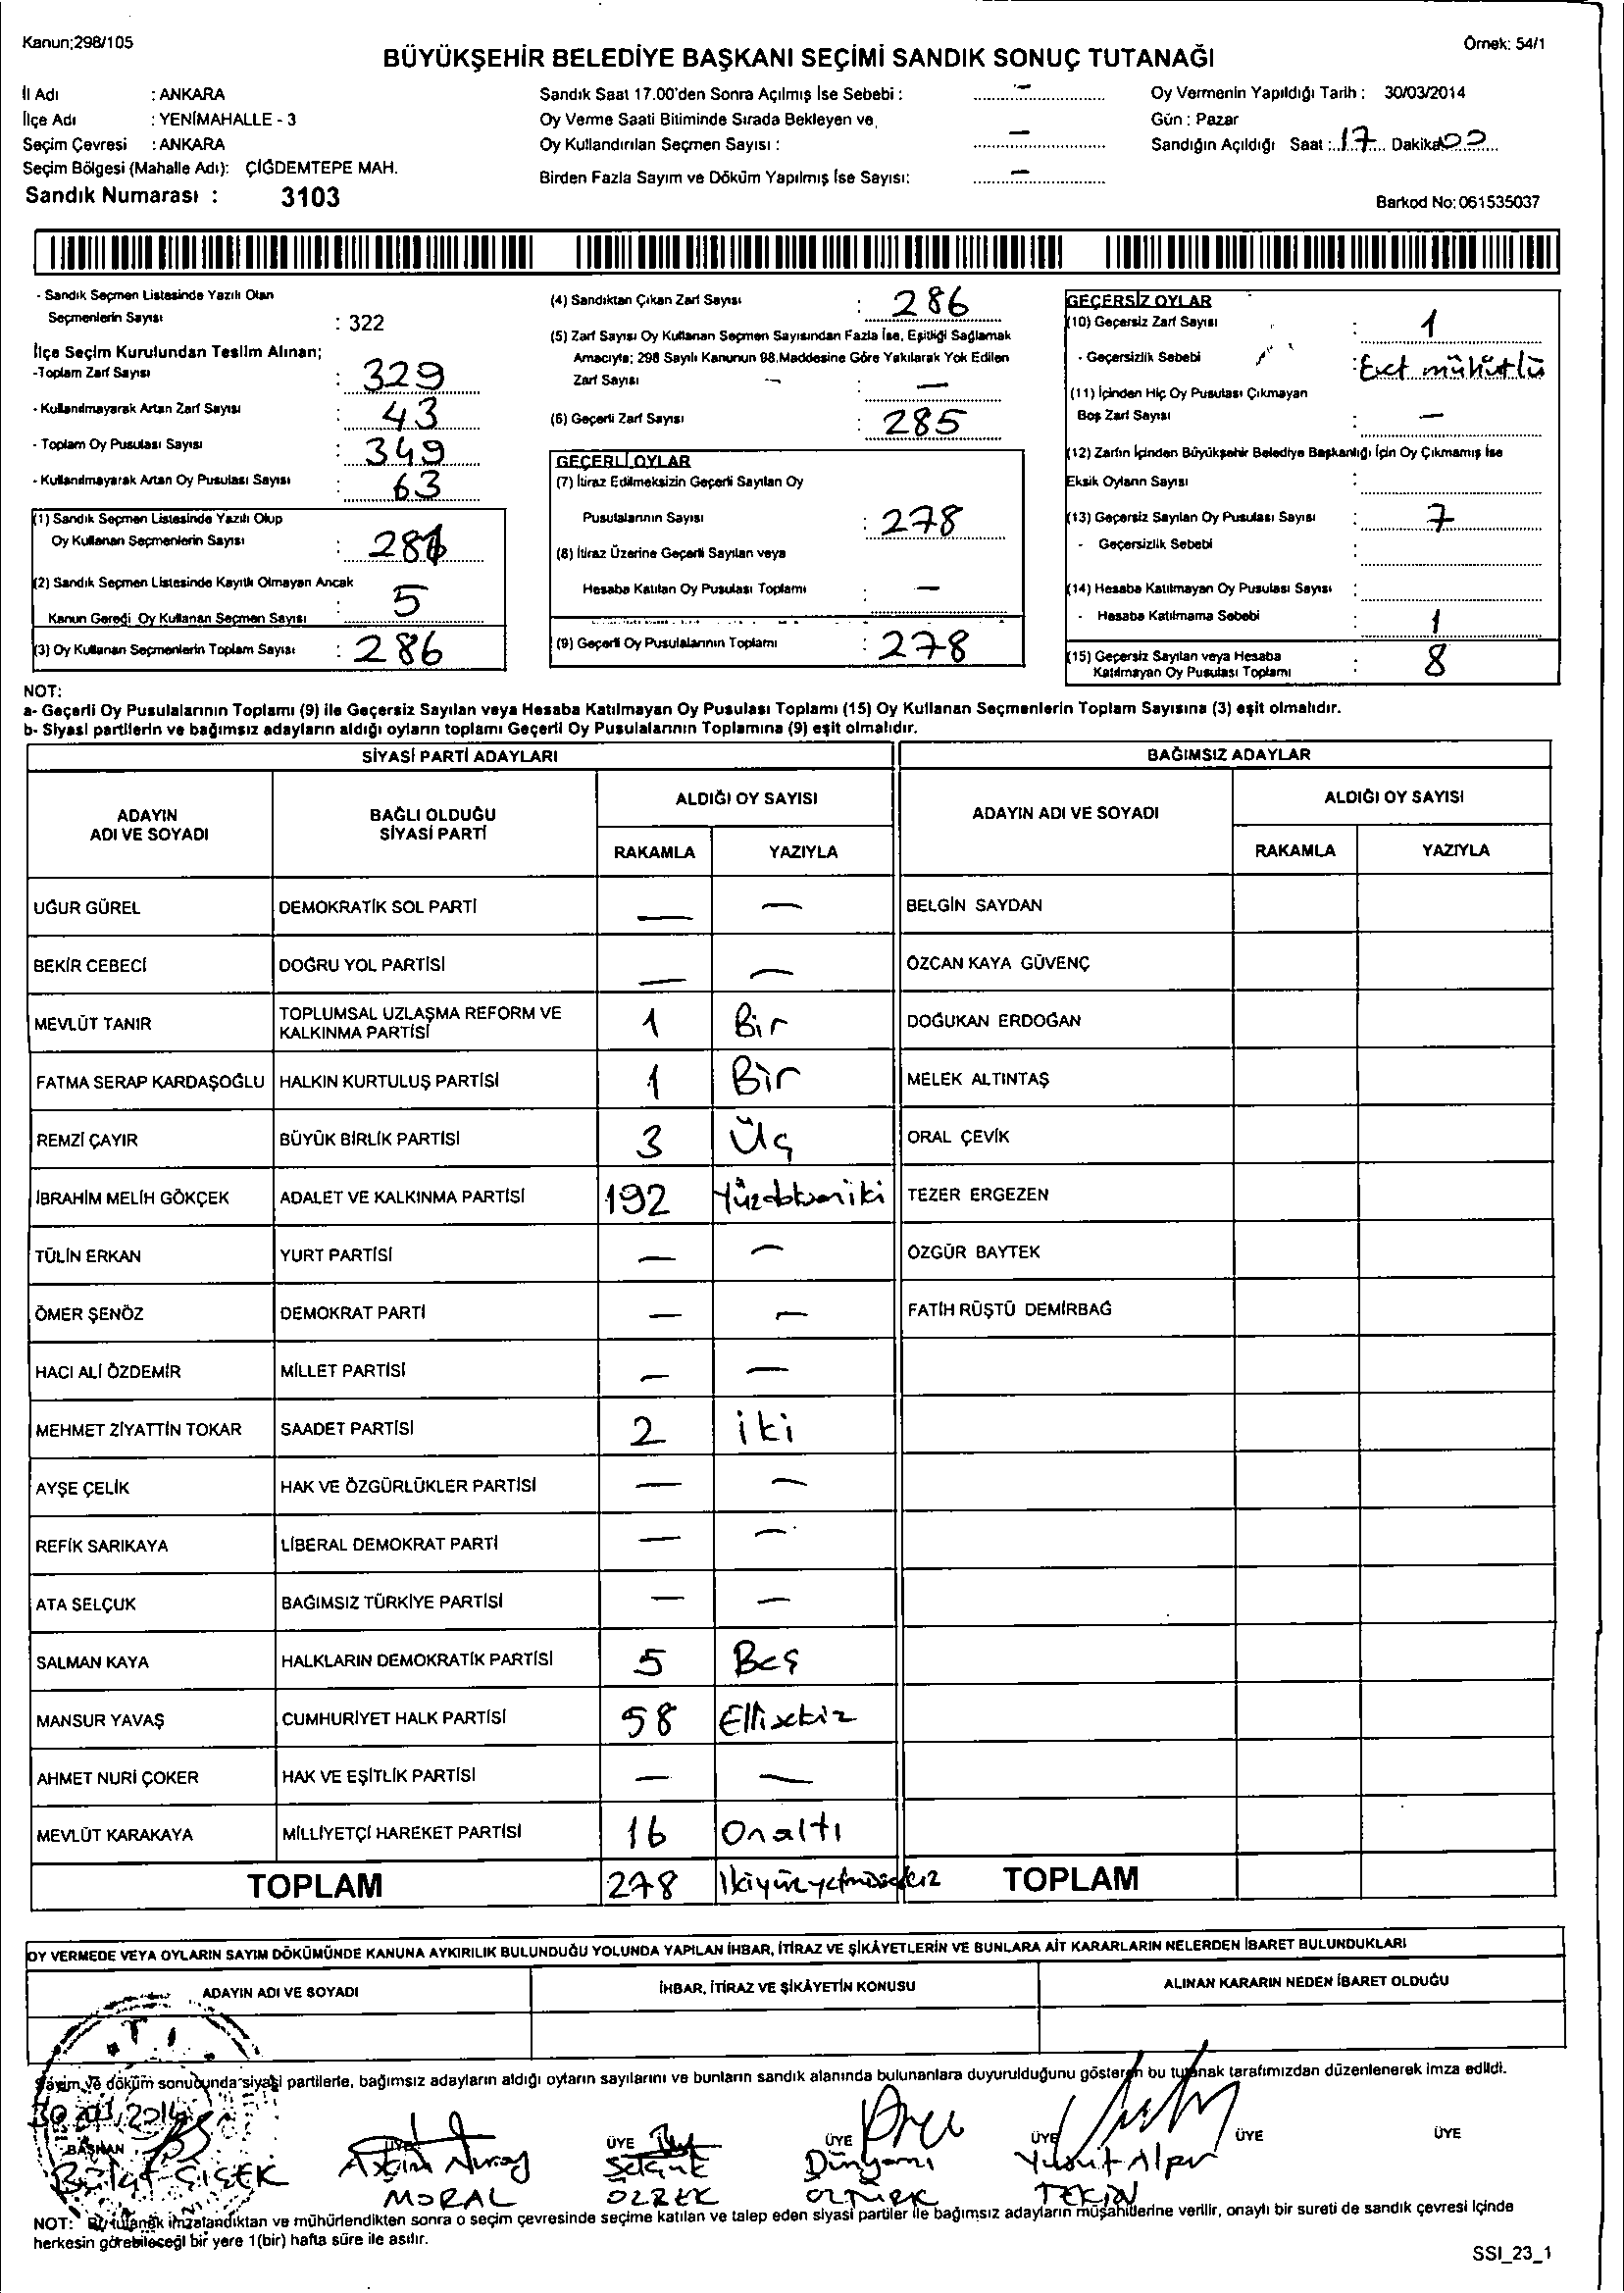 Kanun;298/105
Örnek: 54/1
BÜYÜKŞEHİR BELEDİYE BAŞKANI SEÇİMİ SANDIK SONUÇ TUTANAĞI
İl Adı : ANKARA
İlçe Adı : YENİMAHALLE - 3
Seçim Çevresi : ANKARA
Seçim Bölgesi (Mahalle Adı): ÇİĞDEMTEPE MAH.
Sandık Numarası : 3103
Sandık Saat 17.00'den Sonra Açılmış İse Sebebi : –
Oy Verme Saati Bitiminde Sırada Bekleyen ve,
Oy Kullandırılan Seçmen Sayısı : –
Birden Fazla Sayım ve Döküm Yapılmış İse Sayısı: –
Oy Vermenin Yapıldığı Tarih : 30/03/2014
Gün : Pazar
Sandığın Açıldığı Saat : 17 Dakika 00
Barkod No: 061535037
- Sandık Seçmen Listesinde Yazılı Olan
Seçmenlerin Sayısı : 322
İlçe Seçim Kurulundan Teslim Alınan;
-Toplam Zarf Sayısı : 329
- Kullanılmayarak Artan Zarf Sayısı : 43
- Toplam Oy Pusulası Sayısı : 349
- Kullanılmayarak Artan Oy Pusulası Sayısı : 63
(1) Sandık Seçmen Listesinde Yazılı Olup
Oy Kullanan Seçmenlerin Sayısı : 281
(2) Sandık Seçmen Listesinde Kayıtlı Olmayan Ancak
Kanun Gereği Oy Kullanan Seçmen Sayısı : 5
(3) Oy Kullanan Seçmenlerin Toplam Sayısı : 286
(4) Sandıktan Çıkan Zarf Sayısı : 286
(5) Zarf Sayısı Oy Kullanan Seçmen Sayısından Fazla İse, Eşitliği Sağlamak
Amacıyla; 298 Sayılı Kanunun 98.Maddesine Göre Yakılarak Yok Edilen
Zarf Sayısı : –
(6) Geçerli Zarf Sayısı : 285
GEÇERLİ OYLAR
(7) İtiraz Edilmeksizin Geçerli Sayılan Oy
Pusulalarının Sayısı : 278
(8) İtiraz Üzerine Geçerli Sayılan veya
Hesaba Katılan Oy Pusulası Toplamı : –
(9) Geçerli Oy Pusulalarının Toplamı : 278
GEÇERSİZ OYLAR
(10) Geçersiz Zarf Sayısı : 1
- Geçersizlik Sebebi : Evet mühürlü
(11) İçinden Hiç Oy Pusulası Çıkmayan
Boş Zarf Sayısı : –
(12) Zarfın İçinden Büyükşehir Belediye Başkanlığı İçin Oy Çıkmamış İse
Eksik Oyların Sayısı :
(13) Geçersiz Sayılan Oy Pusulası Sayısı : 7
- Geçersizlik Sebebi :
(14) Hesaba Katılmayan Oy Pusulası Sayısı :
- Hesaba Katılmama Sebebi : 1
(15) Geçersiz Sayılan veya Hesaba
Katılmayan Oy Pusulası Toplamı : 8
NOT:
a- Geçerli Oy Pusulalarının Toplamı (9) ile Geçersiz Sayılan veya Hesaba Katılmayan Oy Pusulası Toplamı (15) Oy Kullanan Seçmenlerin Toplam Sayısına (3) eşit olmalıdır.
b- Siyasi partilerin ve bağımsız adayların aldığı oyların toplamı Geçerli Oy Pusulalarının Toplamına (9) eşit olmalıdır.
SİYASİ PARTİ ADAYLARI BAĞIMSIZ ADAYLAR
ADAYIN ADI VE SOYADI BAĞLI OLDUĞU SİYASİ PARTİ ALDIĞI OY SAYISI ADAYIN ADI VE SOYADI ALDIĞI OY SAYISI
RAKAMLA YAZIYLA RAKAMLA YAZIYLA
UĞUR GÜREL DEMOKRATİK SOL PARTİ – – BELGİN SAYDAN
BEKİR CEBECİ DOĞRU YOL PARTİSİ – – ÖZCAN KAYA GÜVENÇ
MEVLÜT TANIR TOPLUMSAL UZLAŞMA REFORM VE KALKINMA PARTİSİ 1 Bir DOĞUKAN ERDOĞAN
FATMA SERAP KARDAŞOĞLU HALKIN KURTULUŞ PARTİSİ 1 Bir MELEK ALTINTAŞ
REMZİ ÇAYIR BÜYÜK BİRLİK PARTİSİ 3 Üç ORAL ÇEVİK
İBRAHİM MELİH GÖKÇEK ADALET VE KALKINMA PARTİSİ 192 Yüzdoksaniki TEZER ERGEZEN
TÜLİN ERKAN YURT PARTİSİ – – ÖZGÜR BAYTEK
ÖMER ŞENÖZ DEMOKRAT PARTİ – – FATİH RÜŞTÜ DEMİRBAĞ
HACI ALİ ÖZDEMİR MİLLET PARTİSİ – –
MEHMET ZİYATTİN TOKAR SAADET PARTİSİ 2 iki
AYŞE ÇELİK HAK VE ÖZGÜRLÜKLER PARTİSİ – –
REFİK SARIKAYA LİBERAL DEMOKRAT PARTİ – –
ATA SELÇUK BAĞIMSIZ TÜRKİYE PARTİSİ – –
SALMAN KAYA HALKLARIN DEMOKRATİK PARTİSİ 5 Beş
MANSUR YAVAŞ CUMHURİYET HALK PARTİSİ 58 Ellisekiz
AHMET NURİ ÇOKER HAK VE EŞİTLİK PARTİSİ – –
MEVLÜT KARAKAYA MİLLİYETÇİ HAREKET PARTİSİ 16 Onaltı
TOPLAM 278 İkiyüzyetmişsekiz TOPLAM
OY VERMEDE VEYA OYLARIN SAYIM DÖKÜMÜNDE KANUNA AYKIRILIK BULUNDUĞU YOLUNDA YAPILAN İHBAR, İTİRAZ VE ŞİKÂYETLERİN VE BUNLARA AİT KARARLARIN NELERDEN İBARET BULUNDUKLARI
ADAYIN ADI VE SOYADI İHBAR, İTİRAZ VE ŞİKÂYETİN KONUSU ALINAN KARARIN NEDEN İBARET OLDUĞU
Sayım ve döküm sonucunda siyasi partilerle, bağımsız adayların aldığı oyların sayılarını ve bunların sandık alanında bulunanlara duyurulduğunu gösteren bu tutanak tarafımızdan düzenlenerek imza edildi.
30/03/2014
BAŞKAN ÜYE ÜYE ÜYE ÜYE ÜYE ÜYE
Nuray Selçuk Dünyami Yusuf Alper
MORAL ÖZBEK ÖZTÜRK TEKİN
NOT: Bu tutanak imzalandıktan ve mühürlendikten sonra o seçim çevresinde seçime katılan ve talep eden siyasi partiler ile bağımsız adayların müşahitlerine verilir, onaylı bir sureti de sandık çevresi içinde
herkesin görebileceği bir yere 1(bir) hafta süre ile asılır.
SSI_23_1